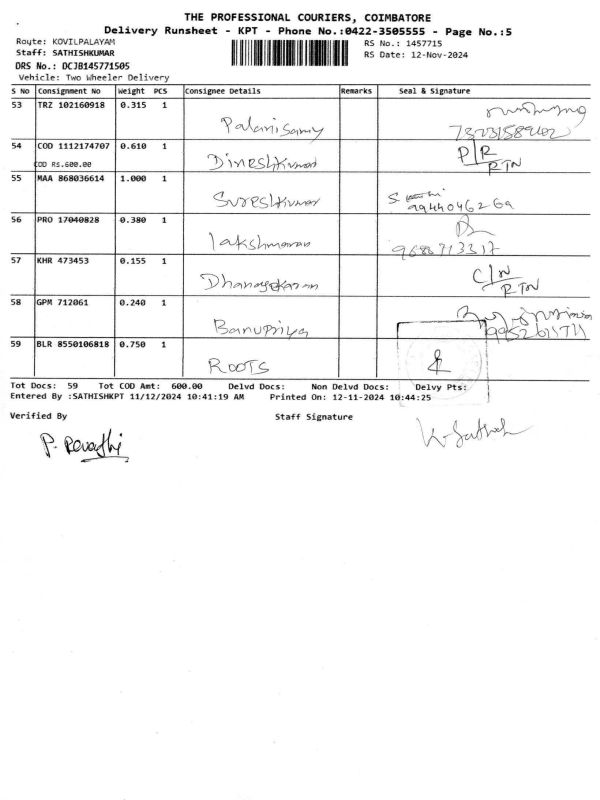 THE PROFESSIONAL COURIERS, COIMBATORE
Delivery Runsheet - KPT - Phone No.:0422-3505555 - Page No.:5
Route: KOVILPALAYAM
RS No.: 1457715
Staff: SATHISHKUMAR
RS Date: 12-Nov-2024
DRS No.: DCJB145771505
Vehicle: Two Wheeler Delivery
S No Consignment No Weight PCS Consignee Details Remarks Seal & Signature
53 TRZ 102160918 0.315 1
Palanisamy
54 COD 1112174707 0.610 1 P/R
COD RS.600.00 Dineshkumar RTN
55 MAA 868036614 1.000 1
Sureshkumar 9944046269
56 PRO 17040828 0.380 1
lakshmanan 9688713317
57 KHR 473453 0.155 1 C/N
Dhanasekaran RTN
58 GPM 712061 0.240 1
Banupriya
59 BLR 8550106818 0.750 1
ROOTS
Tot Docs: 59 Tot COD Amt: 600.00 Delvd Docs: Non Delvd Docs: Delvy Pts:
Entered By :SATHISHKPT 11/12/2024 10:41:19 AM Printed On: 12-11-2024 10:44:25
Verified By Staff Signature
P. Revathi K. Sathish